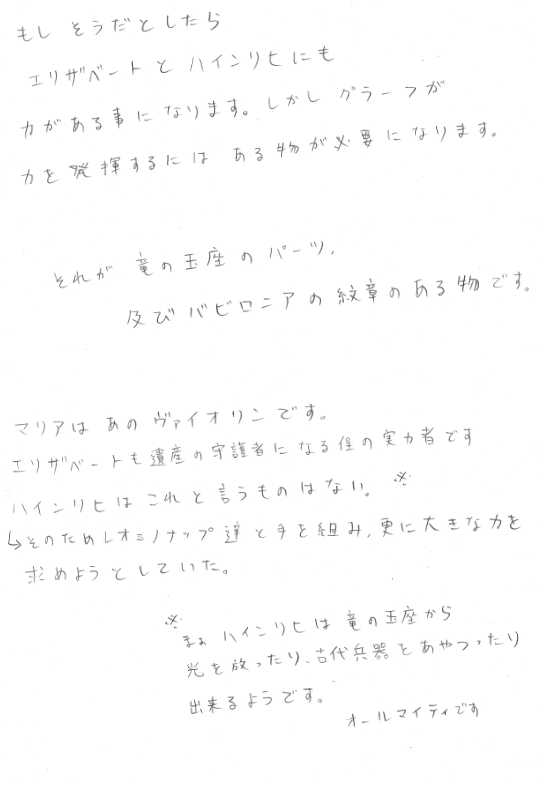 もし そうだとしたら
エリザベートと ハインリヒにも
力がある事に なります。しかし グラーフが
力を 発揮するには ある物が必要に なります。
それが 竜の玉座の パーツ、
及び バビロニアの 紋章の ある物です。
マリアは あの ヴァイオリンです。
エリザベートも 遺産の守護者になる程の実力者です
ハインリヒは これと言うものはない。 ※
↳そのためレオミノナップ達と手を組み、更に大きな力を
求めようとしていた。
※
まぁ ハインリヒは 竜の玉座から
光を放ったり、古代兵器をあやつったり
出来るようです。
オールマイティです